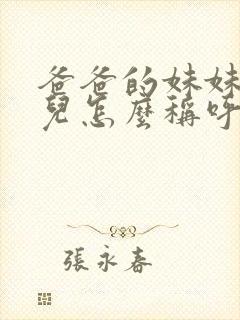 爸爸的妹妹
兒怎麼稱呼
張永春